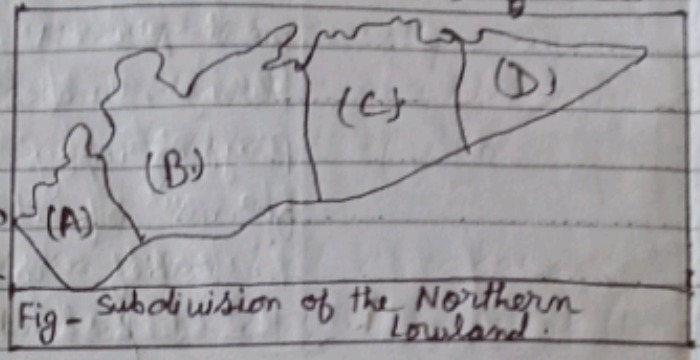 (A)
(B)
(C)
(D)
Fig - Subdivision of the Northern
Lowland.